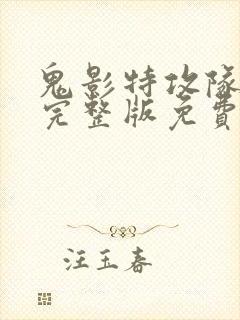 鬼影特攻隊
完整版免費
汪玉春